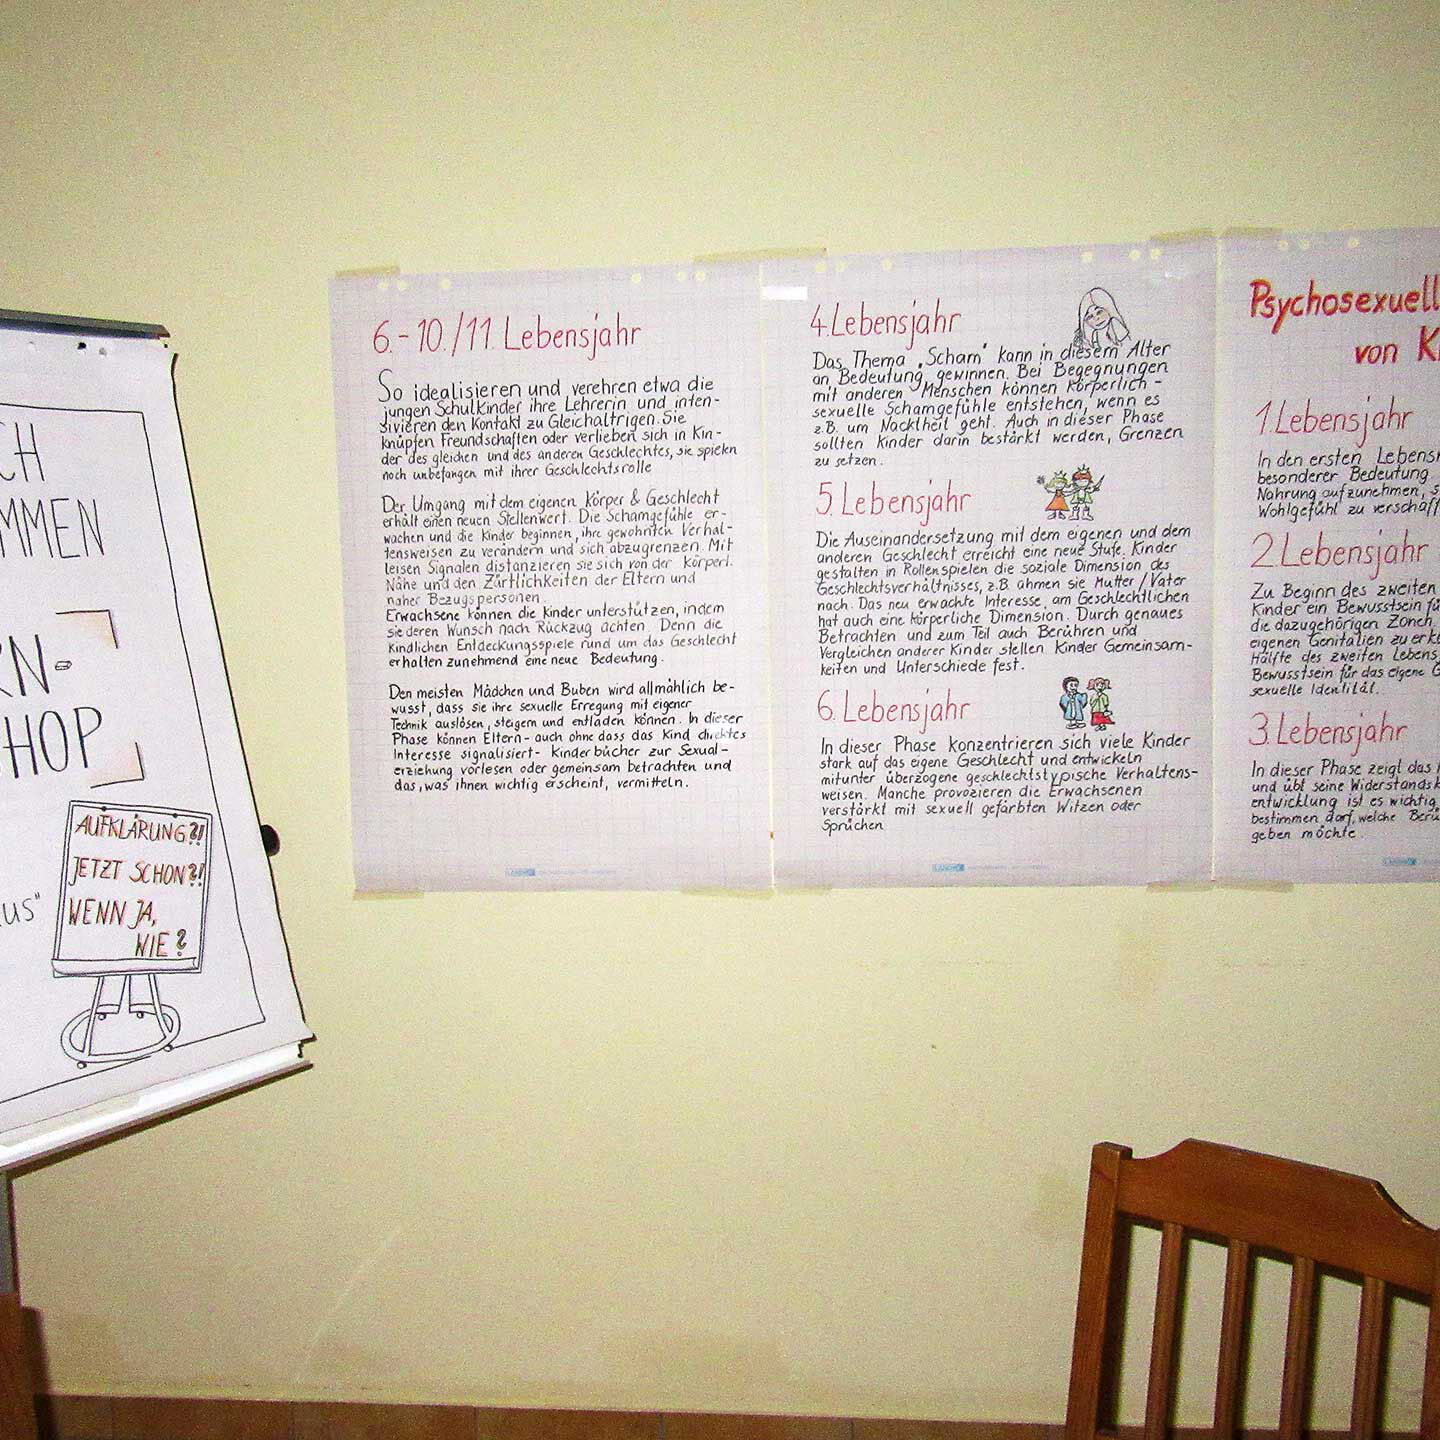 CH
MMEN
RN-
HOP
us"
AUFKLÄRUNG?!
JETZT SCHON?!
WENN JA,
WIE?
6.-10./11. Lebensjahr
So idealisieren und verehren etwa die
jungen Schulkinder ihre Lehrerin und inten-
sivieren den Kontakt zu Gleichaltrigen. Sie
knüpfen Freundschaften oder verlieben sich in Kin-
der des gleichen und des anderen Geschlechtes, sie spielen
noch unbefangen mit ihrer Geschlechtsrolle
Der Umgang mit dem eigenen Körper & Geschlecht
erhält einen neuen Stellenwert. Die Schamgefühle er-
wachen und die Kinder beginnen, ihre gewohnten Verhal-
tensweisen zu verändern und sich abzugrenzen. Mit
leisen Signalen distanzieren sie sich von der körperl.
Nähe und den Zärtlichkeiten der Eltern und
naher Bezugspersonen.
Erwachsene können die Kinder unterstützen, indem
sie deren Wunsch nach Rückzug achten. Denn die
kindlichen Entdeckungsspiele rund um das Geschlecht
erhalten zunehmend eine neue Bedeutung.
Den meisten Mädchen und Buben wird allmählich be-
wusst, dass sie ihre sexuelle Erregung mit eigener
Technik auslösen, steigern und entladen können. In dieser
Phase können Eltern - auch ohne dass das Kind direktes
Interesse signalisiert - Kinderbücher zur Sexual-
erziehung vorlesen oder gemeinsam betrachten und
das, was ihnen wichtig erscheint, vermitteln.
4. Lebensjahr
Das Thema „Scham" kann in diesem Alter
an Bedeutung gewinnen. Bei Begegnungen
mit anderen Menschen können körperlich -
sexuelle Schamgefühle entstehen, wenn es
z.B. um Nacktheit geht. Auch in dieser Phase
sollten Kinder darin bestärkt werden, Grenzen
zu setzen.
5. Lebensjahr
Die Auseinandersetzung mit dem eigenen und dem
anderen Geschlecht erreicht eine neue Stufe. Kinder
gestalten in Rollenspielen die soziale Dimension des
Geschlechtsverhältnisses, z.B. ahmen sie Mutter / Vater
nach. Das neu erwachte Interesse am Geschlechtlichen
hat auch eine körperliche Dimension. Durch genaues
Betrachten und zum Teil auch Berühren und
Vergleichen anderer Kinder stellen Kinder Gemeinsam-
keiten und Unterschiede fest.
6. Lebensjahr
In dieser Phase konzentrieren sich viele Kinder
stark auf das eigene Geschlecht und entwickeln
mitunter überzogene geschlechtstypische Verhaltens-
weisen. Manche provozieren die Erwachsenen
verstärkt mit sexuell gefärbten Witzen oder
Sprüchen
Psychosexuell
von K
1. Lebensjahr
In den ersten Lebens
besonderer Bedeutung.
Nahrung aufzunehmen, s
Wohlgefühl zu verschaff
2. Lebensjahr
Zu Beginn des zweiten
Kinder ein Bewusstsein fü
die dazugehörigen Zonen.
eigenen Genitalien zu erk
Hälfte des zweiten Lebens
Bewusstsein für das eigene G
sexuelle Identität.
3. Lebensjahr
In dieser Phase zeigt das
und übt seine Widerstandsk
entwicklung ist es wichtig
bestimmen darf, welche Berü
geben möchte.